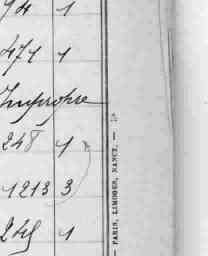 94 1
471 1
Impropre
248 1
1213 3
249 1
— PARIS, LIMOGES, NANCY. —